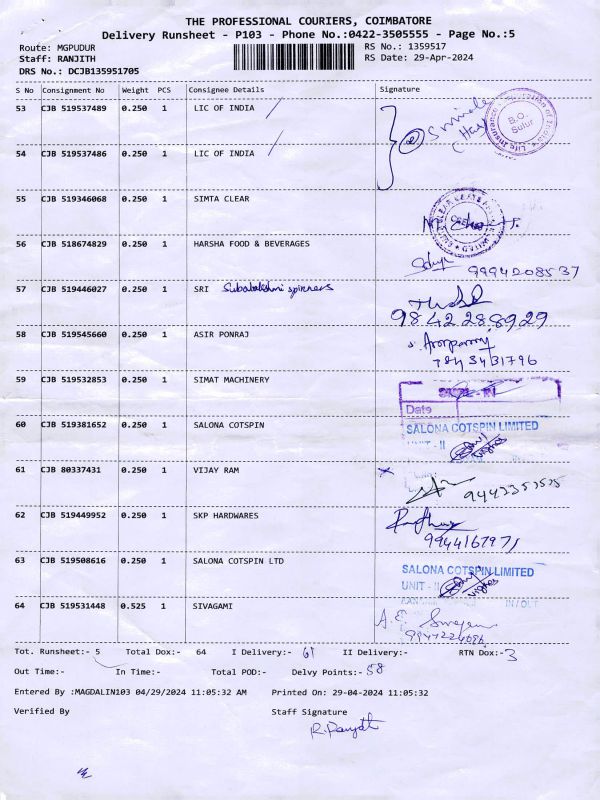 THE PROFESSIONAL COURIERS, COIMBATORE
Delivery Runsheet - P103 - Phone No.:0422-3505555 - Page No.:5
Route: MGPUDUR RS No.: 1359517
Staff: RANJITH RS Date: 29-Apr-2024
DRS No.: DCJB135951705
S No Consignment No Weight PCS Consignee Details Signature
53 CJB 519537489 0.250 1 LIC OF INDIA
B.O. Sulur
54 CJB 519537486 0.250 1 LIC OF INDIA
55 CJB 519346068 0.250 1 SIMTA CLEAR
56 CJB 518674829 0.250 1 HARSHA FOOD & BEVERAGES
9994208537
57 CJB 519446027 0.250 1 SRI Subabalakshmi spinners
9842288929
58 CJB 519545660 0.250 1 ASIR PONRAJ
59 CJB 519532853 0.250 1 SIMAT MACHINERY
Date
60 CJB 519381652 0.250 1 SALONA COTSPIN SALONA COTSPIN LIMITED
UNIT - II
61 CJB 80337431 0.250 1 VIJAY RAM
62 CJB 519449952 0.250 1 SKP HARDWARES
63 CJB 519508616 0.250 1 SALONA COTSPIN LTD SALONA COTSPIN LIMITED
UNIT - II
IN/OUT
64 CJB 519531448 0.525 1 SIVAGAMI
Tot. Runsheet:- 5 Total Dox:- 64 I Delivery:- 61 II Delivery:- RTN Dox:- 3
Out Time:- In Time:- Total POD:- Delvy Points:- 58
Entered By :MAGDALIN103 04/29/2024 11:05:32 AM Printed On: 29-04-2024 11:05:32
Verified By Staff Signature